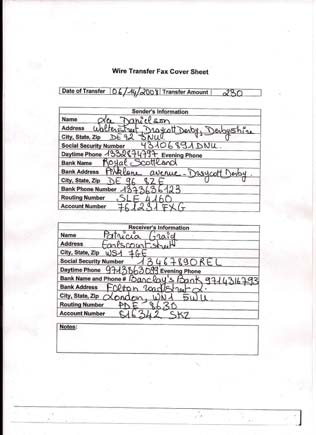 Wire Transfer Fax Cover Sheet
Date of Transfer 06/14/2008 Transfer Amount 230
Sender's Information
Name Danielson
Address Walterstreet, Draycott Derby, Derbyshire
City, State, Zip DE 92 3NU
Social Security Number 43106891DNU.
Daytime Phone 1332874797 Evening Phone
Bank Name Royal Scotland
Bank Address Parklane avenue - Draycott Derby.
City, State, Zip DE 96 8ZE
Bank Phone Number 1373636123
Routing Number SLE 4160
Account Number 761231FXG
Receiver's Information
Name Patricia Craig
Address Earlscourtstreet
City, State, Zip WS1 7GE
Social Security Number 13467890REL
Daytime Phone 9713863099 Evening Phone
Bank Name and Phone # Barclay's Bank 9714316793
Bank Address Fulton roadstreet 2.
City, State, Zip London, WN1 5WU.
Routing Number PDE 8630
Account Number 816342 SKZ
Notes: